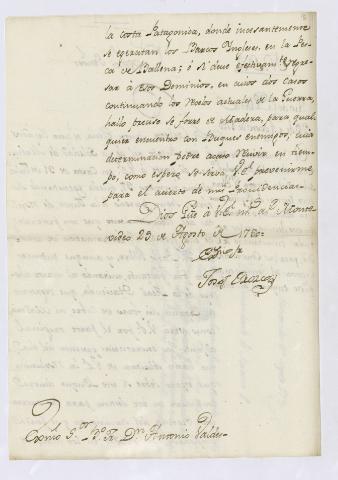 la costa Patagonica, donde incesantemente
se egercitan los Barcos Ingleses, en la Pes-
ca de Ballena; ó si deve efectuarlo regre-
sar à esos Dominios, en cuios dos Casos
continuando los actuales de la Guerra,
hallo preciso se forre de Madera, para qual-
quiera encuentro con Buques enemigos, cuia
determinacion podre acaso recivir en tiem-
po, como espero se sirva V.E. prevenirme,
para el acierto de mis Providencias.
Dios gũe à V.E. m.s a.s Monte-
video 23 de Agosto de
Exmo Sr
Josef
Exmo. S.or D.n Antonio Valdes.